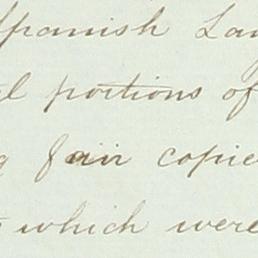 Spanish Lan
al portions of
g fair copie
which were